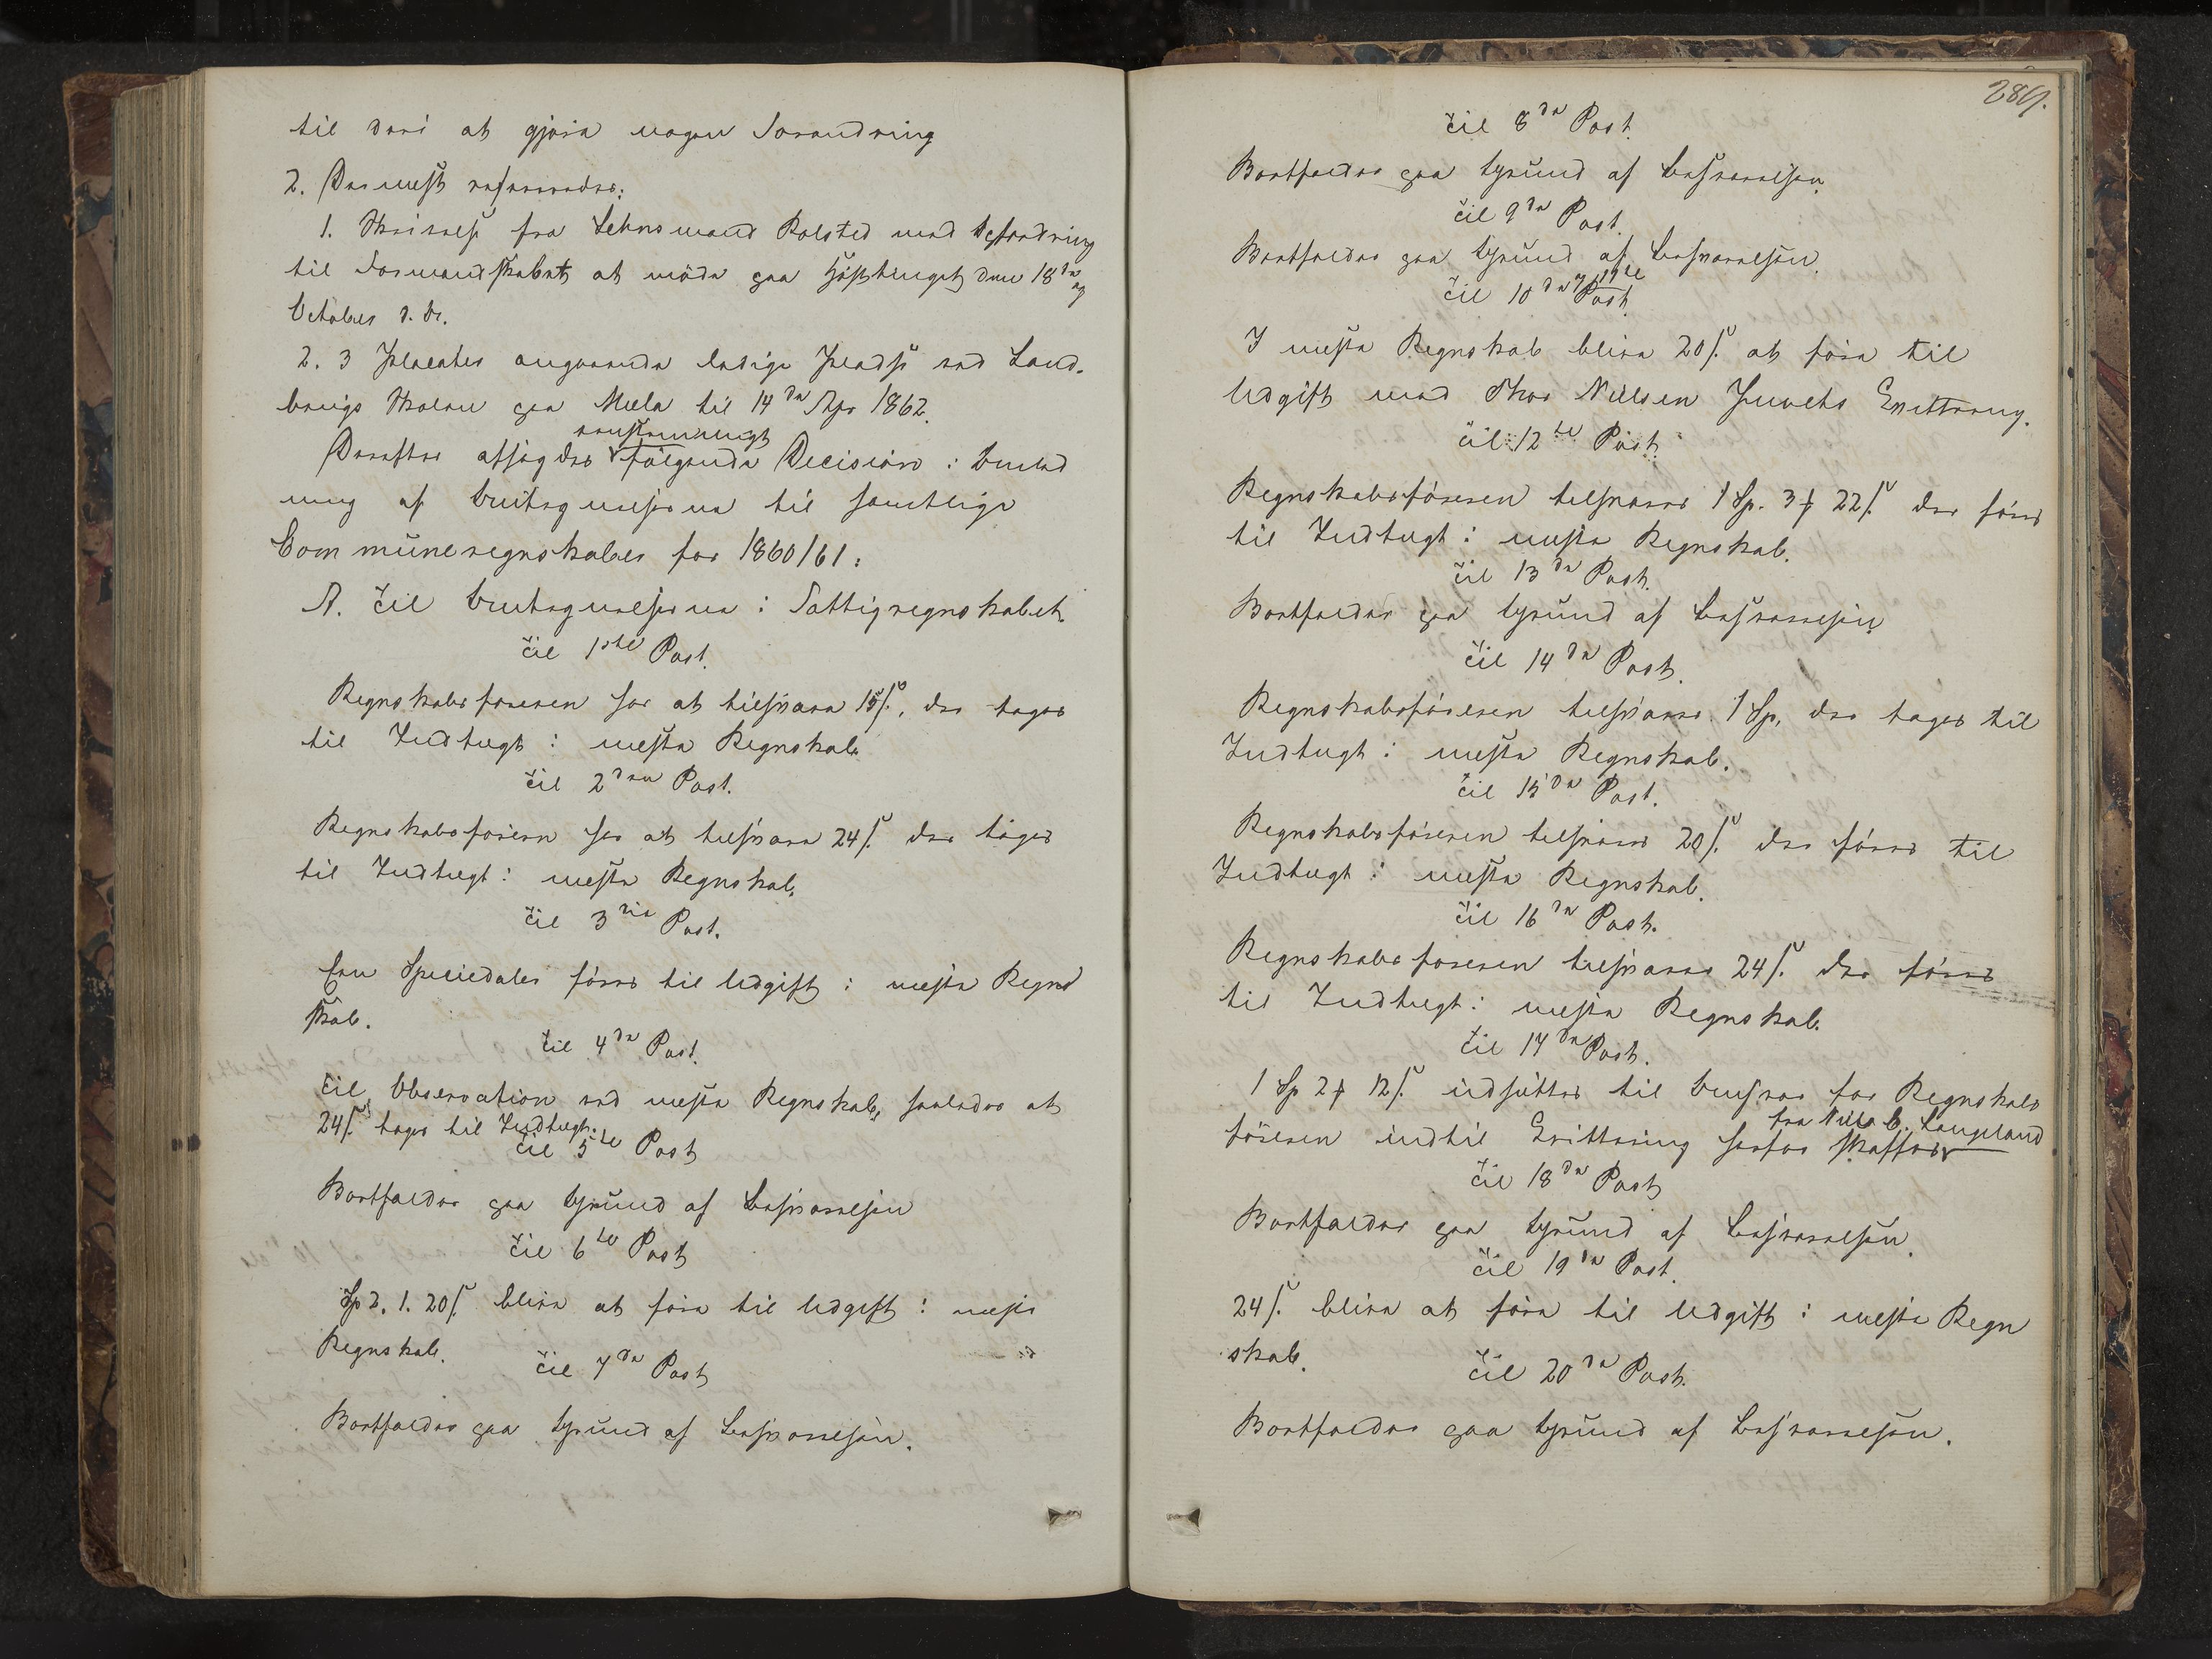 til deri at gjøre nogen Forandring
2. Dernæst refereredes:
1. Skrivelse fra Lehnsmand Rolsted med Opfordring
til Formandskabet at møde paa Høsttinget den 18de og
October d. Ar.
2. 3 Placater angaaende ledige Pladse ved Land-
brugs Skolen paa Mæla til 14de Apr 1862.
eenstemmigt
Derefter afsagdes følgende Decision i Anled
ning af Antegnelserne til samtlige
Communeregnskaber for 1860/61:
A. Til Antegnelserne i Fattigregnskabet.
Til 1ste Post.
Regnskabsføreren har at tilsvare 15 s., der tages
til Indtægt i næste Regnskab.
Til 2den Post.
Regnskabsføreren har at tilsvare 24 s. der tages
til Indtægt i næste Regnskab.
Til 3die Post.
Een Speciedaler føres til Udgift i næste Regn
skab.
Til 4de Post.
Til Observation ved næste Regnskab, saaledes at
24 s. tages til Indtægt.
Til 5te Post
Bortfalder paa Grund af Besvarelsen
Til 6te Post
Spd. 1. 20 s. blive at føre til Udgift i næste
Regnskab.
Til 7de Post
Bortfalder paa Grund af Besvarelsen.
289.
Til 8de Post.
Bortfalder paa Grund af Besvarelsen.
Til 9de Post.
Bortfalder paa Grund af Besvarelsen.
Til 10de og 11te Post.
I næste Regnskab blive 20 s. at føre til
Udgift med Thor Nielsen Juvets Qvittering.
Til 12te Post.
Regnskabsføreren tilsvarer 1 Sp. 3 ƒ 22 s. der føres
til Indtægt i næste Regnskab.
Til 13de Post.
Bortfalder paa Grund af Besvarelsen.
Til 14de Post.
Regnskabsføreren tilsvarer 1 Sp. der tages til
Indtægt i næste Regnskab.
Til 15de Post.
Regnskabsføreren tilsvarer 20 s. der føres til
Indtægt i næste Regnskab.
Til 16de Post.
Regnskabsføreren tilsvarer 24 s. der føres
til Indtægt i næste Regnskab.
Til 17de Post.
1 Sp 2 ƒ 12 s. udsættes til Ansvar for Regnskabs
fra Niels C. Langeland
føreren indtil Qvittering herfor skaffes
Til 18de Post
Bortfalder paa Grund af Besvarelsen.
Til 19de Post.
24 s. blive at føre til Udgift i næste Regn
skab.
Til 20de Post.
Bortfalder paa Grund af Besvarelsen.